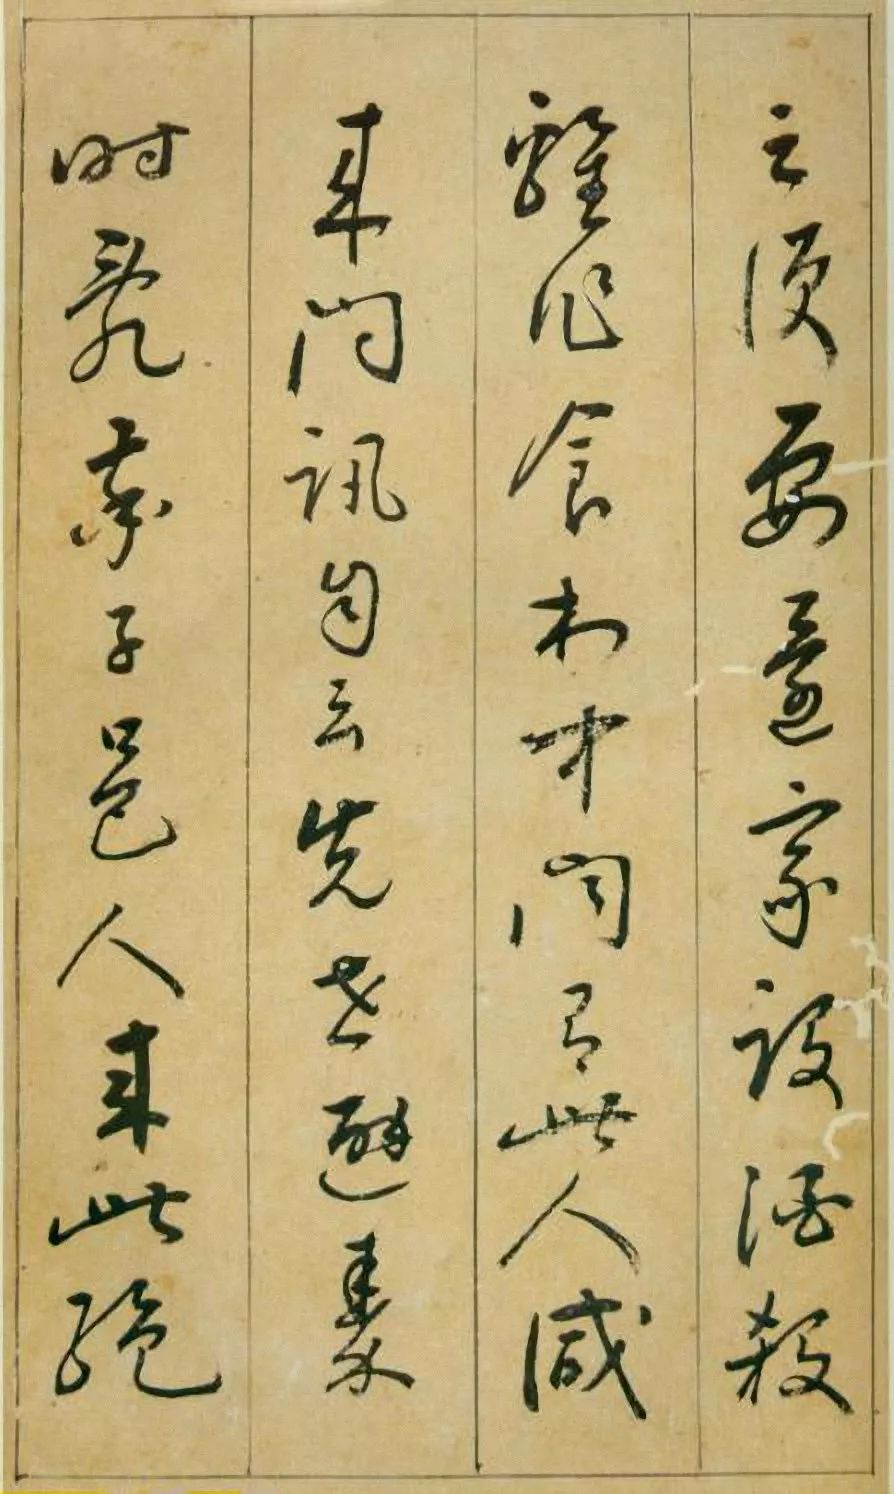 之便要還家設酒殺
雞作食村中聞有此人咸
来問訊自云先世避秦
时亂率妻子邑人来此絕